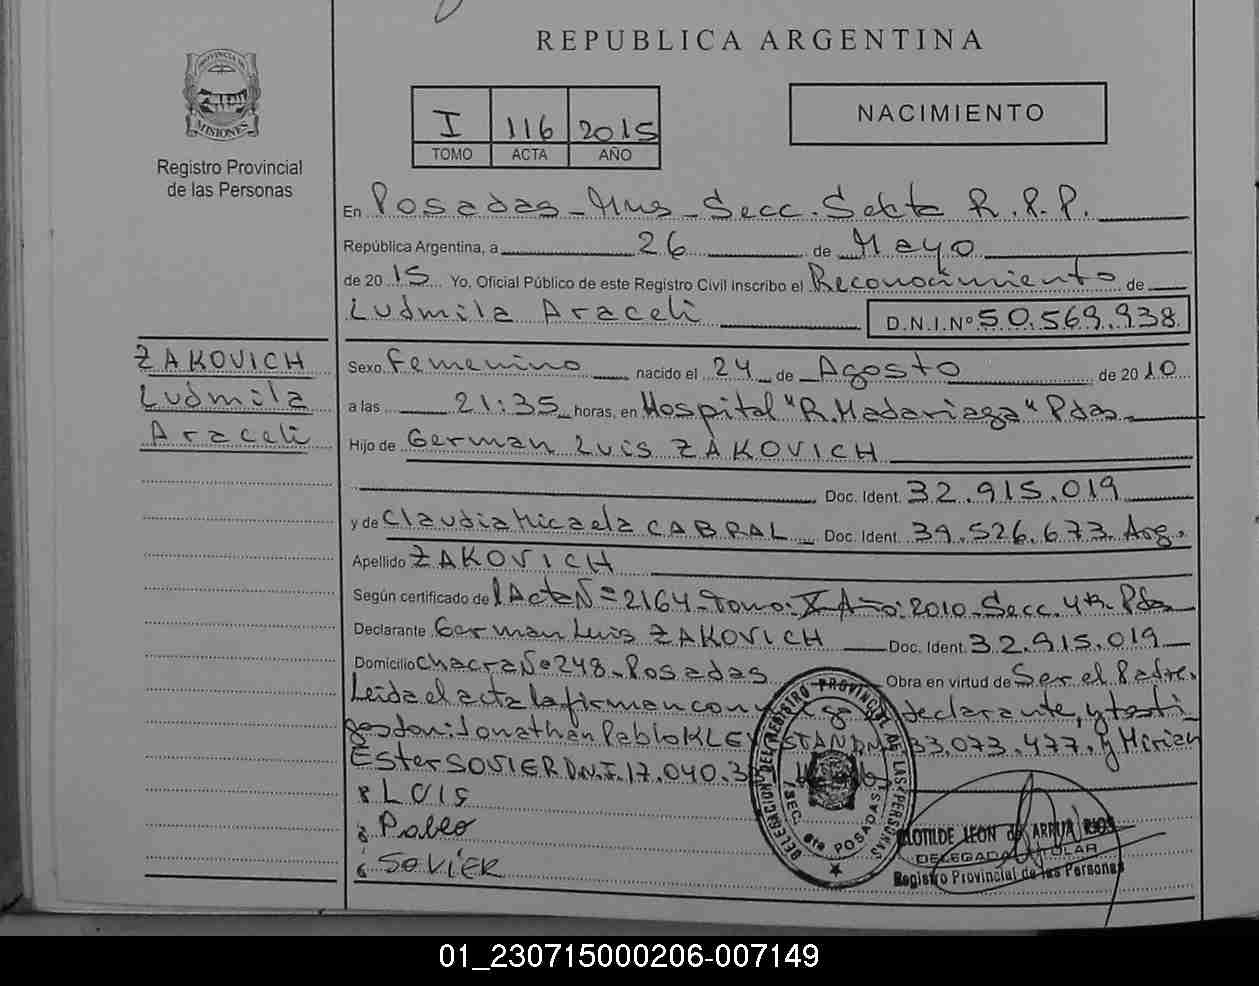 REPUBLICA ARGENTINA
PROVINCIA DE
MISIONES
Registro Provincial
de las Personas
I 116 2015
TOMO ACTA AÑO
NACIMIENTO
En Posadas - Mns - Secc. Sexta R.P.P.
República Argentina, a 26 de Mayo
de 2015 Yo, Oficial Público de este Registro Civil inscribo el Reconocimiento de
Ludmila Araceli D.N.I.Nº 50.569.938
ZAKOVICH
Ludmila
Araceli
Sexo Femenino nacido el 24 de Agosto de 2010
a las 21:35 horas, en Hospital "R. Madariaga" Pdas
Hijo de German Luis ZAKOVICH
Doc. Ident. 32.915.019
y de Claudia Micaela CABRAL Doc. Ident. 39.526.673. Arg.
Apellido ZAKOVICH
Según certificado del Acta Nº 2164 - Tomo: X Año: 2010 - Secc. 4ta Pdas
Declarante German Luis ZAKOVICH Doc. Ident. 32.915.019
Domicilio Chacra Nº 248 - Posadas Obra en virtud de Ser el Padre.
Leida el acta la firman con declarante, y testi
gos don: Jonathan Pablo 33.073.477. y Mirian
Ester SOVIER D.N.I. 17.040.3
LUIS
Pablo
SOVIER
DELEGACION DEL REGISTRO PROVINCIAL DE LAS PERSONAS
SEC. 6ta POSADAS
CLOTILDE LEON de ARRUA RIOS
DELEGADA TITULAR
Registro Provincial de las Personas
01_230715000206-007149